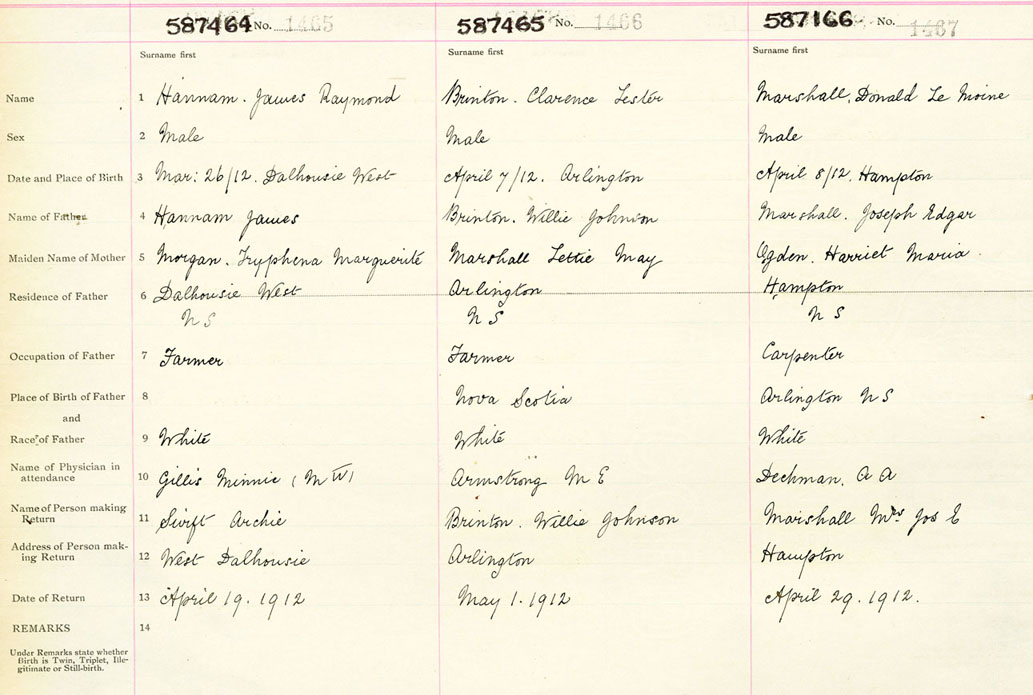 587464 No. 1465 587465 No. 1466 587166 No. 1467
Surname first Surname first Surname first
Name 1 Hannam. James Raymond Brinton. Clarence Lester Marshall. Donald Le Moine
Sex 2 Male Male Male
Date and Place of Birth 3 Mar: 26/12. Dalhousie West April 7/12. Arlington April 8/12. Hampton
Name of Father 4 Hannam James Brinton. Willie Johnson Marshall. Joseph Edgar
Maiden Name of Mother 5 Morgan. Tryphena Marguerite Marshall Lettie May Ogden. Harriet Maria.
Residence of Father 6 Dalhousie West Arlington Hampton
N S N S N S
Occupation of Father 7 Farmer Farmer Carpenter
Place of Birth of Father 8 Nova Scotia Arlington N S
and
Race of Father 9 White White White
Name of Physician in
attendance 10 Gillis Minnie (M W) Armstrong M E Dechman. A A
Name of Person making
Return 11 Swift Archie Brinton. Willie Johnson Marshall Mrs Jos E
Address of Person mak-
ing Return 12 West Dalhousie Arlington Hampton
Date of Return 13 April 19. 1912 May 1. 1912 April 29. 1912.
REMARKS 14
Under Remarks state whether
Birth is Twin, Triplet, Ille-
gitimate or Still-birth.